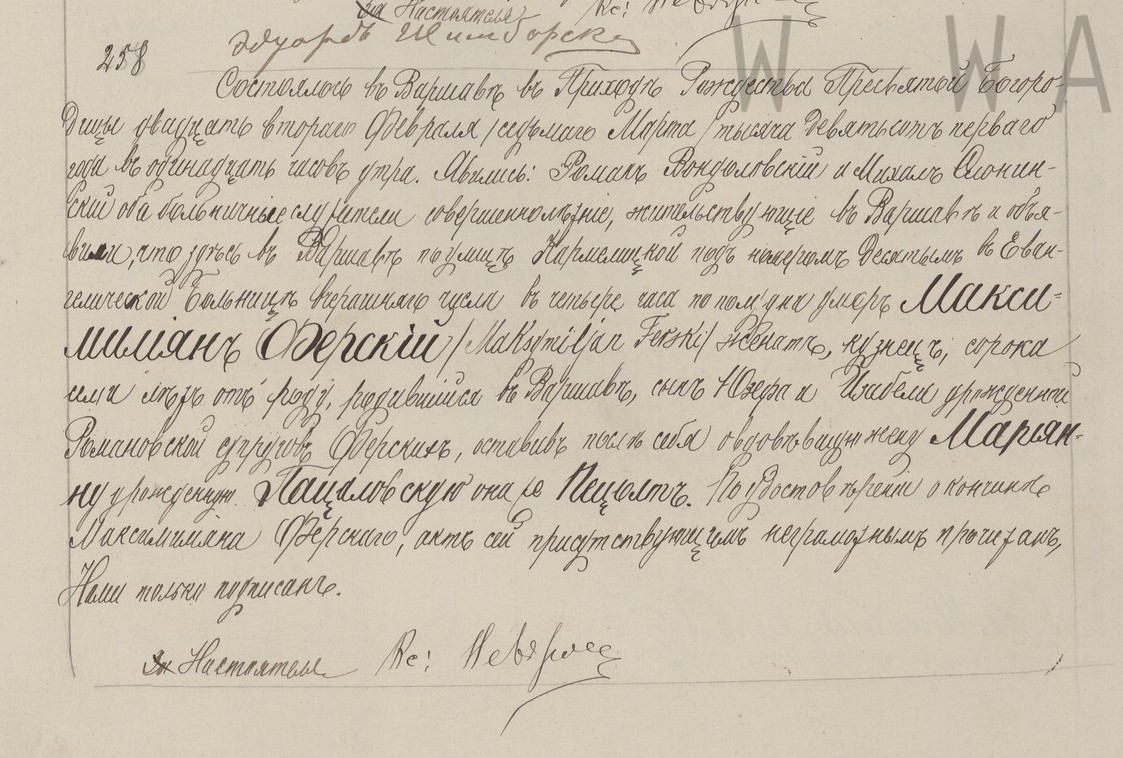 за Настоятеля Кс:
258
Состоялось въ Варшавѣ въ Приходѣ Рождества Пресвятой Богоро-
дицы двадцать втораго Февраля /седьмаго Марта/ тысяча девятьсотъ перваго
года въ одинадцать часовъ утра. Явились: Романъ и Михалъ
скій оба больничные служители совершеннолѣтніе, жительствующіе въ Варшавѣ и объя-
вили, что здѣсь въ Варшавѣ по улицѣ Кармелицкой подъ номеромъ десятымъ въ Еван-
гелической Больницѣ вчерашняго числа въ четыре часа по полудни умеръ Макси-
миліянъ Ферскій /Maksymiljan Ferski/ женатъ, кузнецъ, сорока
семи лѣтъ отъ роду, родившійся въ Варшавѣ, сынъ Юзефа и Изабели урожденной
Романовской супруговъ Ферскихъ, оставивъ послѣ себя овдовѣвшую жену Маріян-
ну урожденную она же По удостовѣреніи о кончинѣ
Максимиліяна Ферскаго, актъ сей присутствующимъ неграмотнымъ прочитанъ,
Нами только подписанъ.
за Настоятеля Кс:
W W A